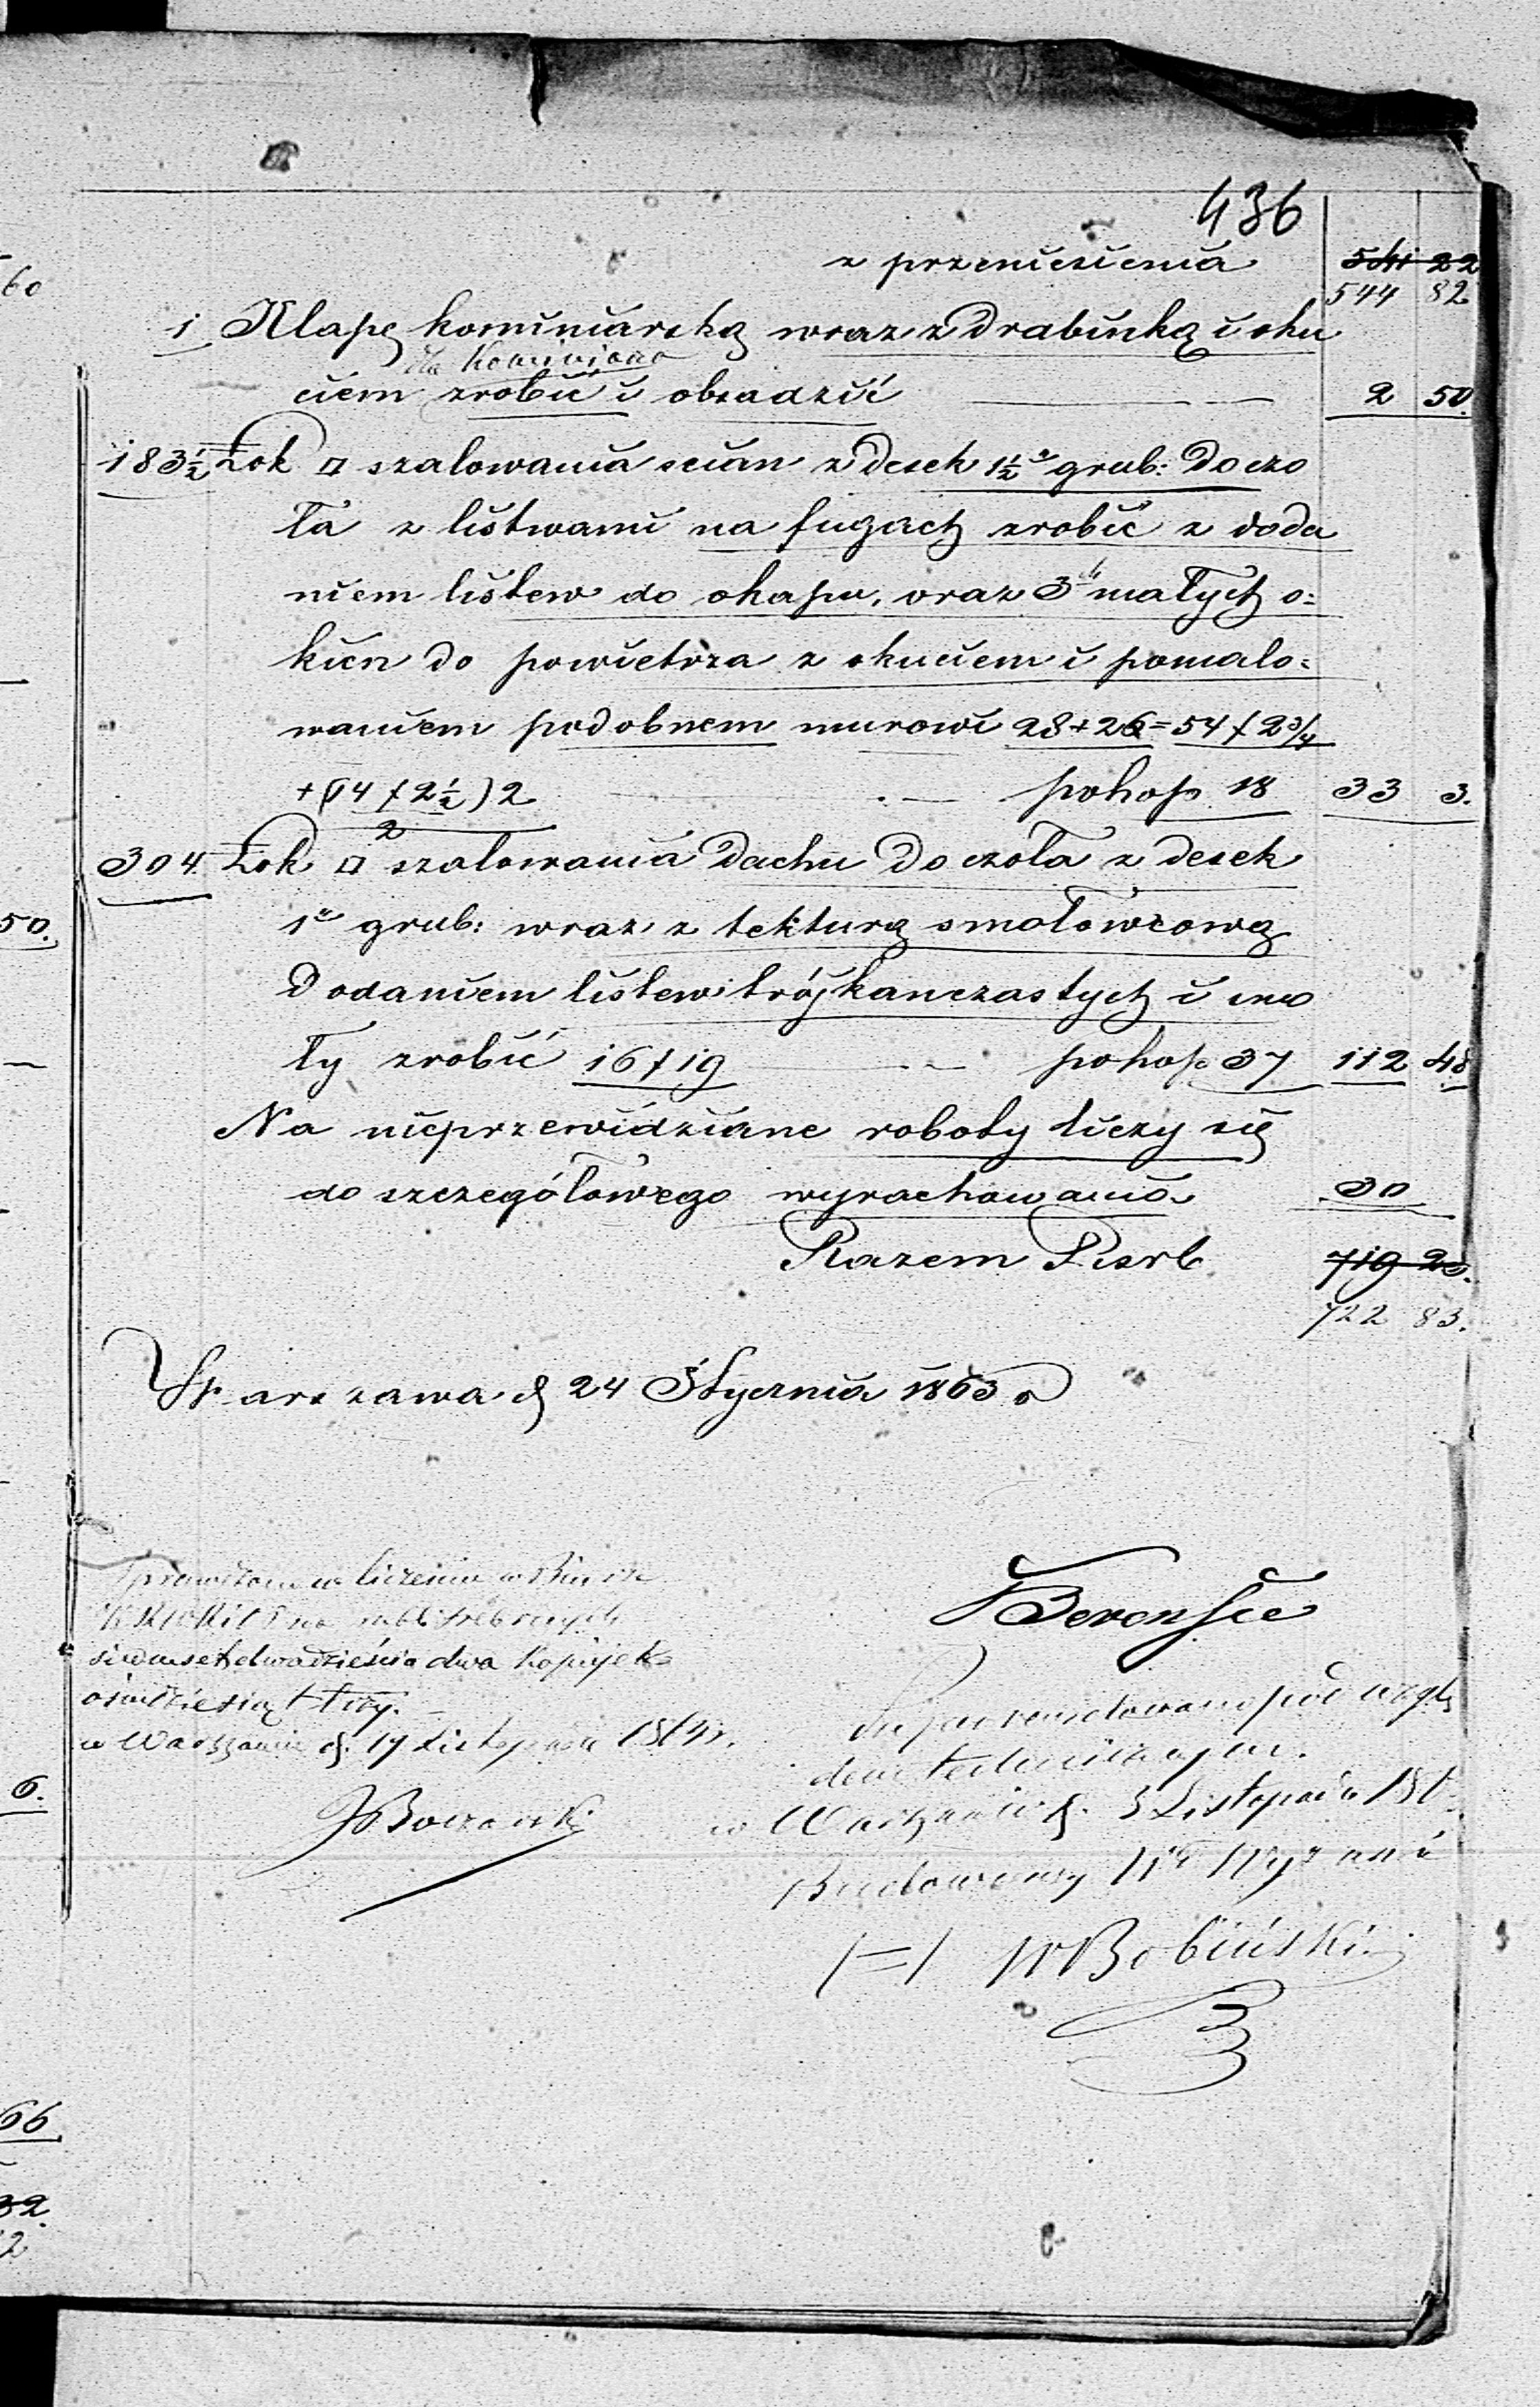 436
z przeniesienia 541 22
544 82
1 Klapę kominiarską wraz z drabinką i oku
dla kominiarza
ciem zrobić i obsadzić 2 50
183½ Łok □ szalowania scian z desek 1½" grub: do czo
ła z listwami na fugach zrobić z doda
niem listew do okapu, oraz 3ch małych o=
kien do powietrza z okuciem i pomalo=
waniem podobnem murowi 28+26=54×2¾
+(14×2½)2 pokop 18 33 3.
2
304 Łok □ szalowania dachu do czoła z desek
1" grub: wraz z tekturą smołowcową
Dodaniem listew trójkanczastych i smo
ły zrobić 16×19 pokop 37 112 48
Na nieprzewidziane roboty liczy się
do szczegółowego wyrachowania 30
Razem Rsrb 719 23.
722 83.
Warszawa d 24 Stycznia 1863 r
Sprawdzono w liczeniu w Biurze
na rubli srebrnych
siedmset dwadzieścia dwa kopiejek
ośmdziesiąt trzy.
w Warszawie d. 17 Listopada
Superrewidowano pod wzglę
dem technicznym.
w Warszawie d. 3 Listopada
Budowniczy
/=/ W Bobiński
60
50.
6.
66
32.
2